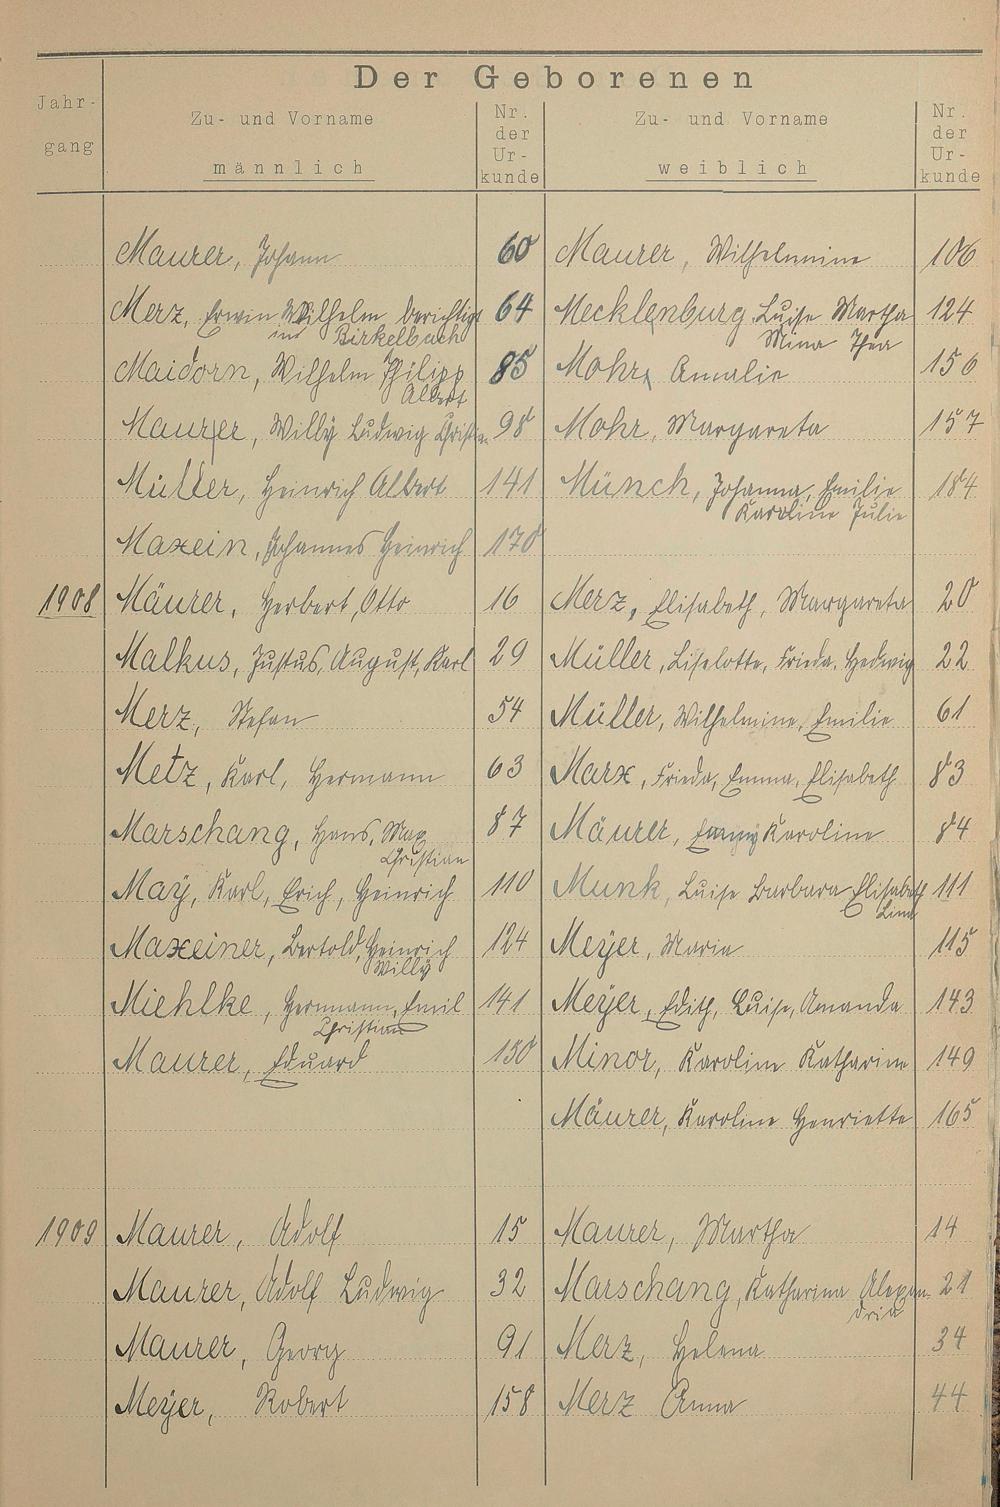 Der Geborenen
Jahr-
gang
Zu- und Vorname
männlich
Nr.
der
Ur-
kunde
Zu- und Vorname
weiblich
Nr.
der
Ur-
kunde
Maurer, Johann 60 Maurer, Wilhelmine 106
Merz, Erwin Wilhelm berichtigt 64 Mecklenburg Luise Martha 124
in Birkelbach Mina Thea
Maidorn, Wilhelm Philipp 85 Mohr, Amalie 156
Albert
Maurer, Willÿ Ludwig Christian 98 Mohr, Margareta 157
Müller, Heinrich Albert 141 Münch, Johanna, Emilie 184
Karoline Julie
Maxein, Johannes Heinrich 170
1908 Mäurer, Herbert, Otto 16 Merz, Elisabeth, Margareta 20
Malkus, Justus, August, Karl 29 Müller, Liselotte, Frieda, Hedwig 22
Merz, Stefan 54 Müller, Wilhelmine, Emilie 61
Metz, Karl, Hermann 63 Marx, Frieda, Emma, Elisabeth 83
Marschang, Hans, Max 87 Mäurer, Emmÿ Karoline 84
Christian
Maÿ, Karl, Erich, Heinrich 110 Munk, Luise Barbara Elisabeth 111
Lina
Maxeiner, Bertold, Heinrich 124 Meÿer, Maria 115
Willÿ
Miehlke, Hermann, Emil 141 Meÿer, Edith, Luise, Amanda 143
Christian
Maurer, Eduard 150 Minor, Karoline Katharine 149
Mäurer, Karoline Henriette 165
1909 Maurer, Adolf 15 Maurer, Martha 14
Maurer, Adolf Ludwig 32 Marschang, Katharina Alexan- 21
dria
Maurer, Georg 91 Merz, Helena 34
Meÿer, Robert 158 Merz Anna 44